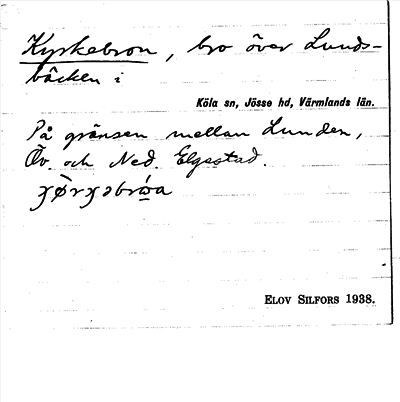 Kyrkebron, bro över Lunds-
bäcken i
Köla sn, Jösse hd, Värmlands län.
På gränsen mellan Lunden,
Öv. och Ned. Elgestad.
ELOV SILFORS 1938.